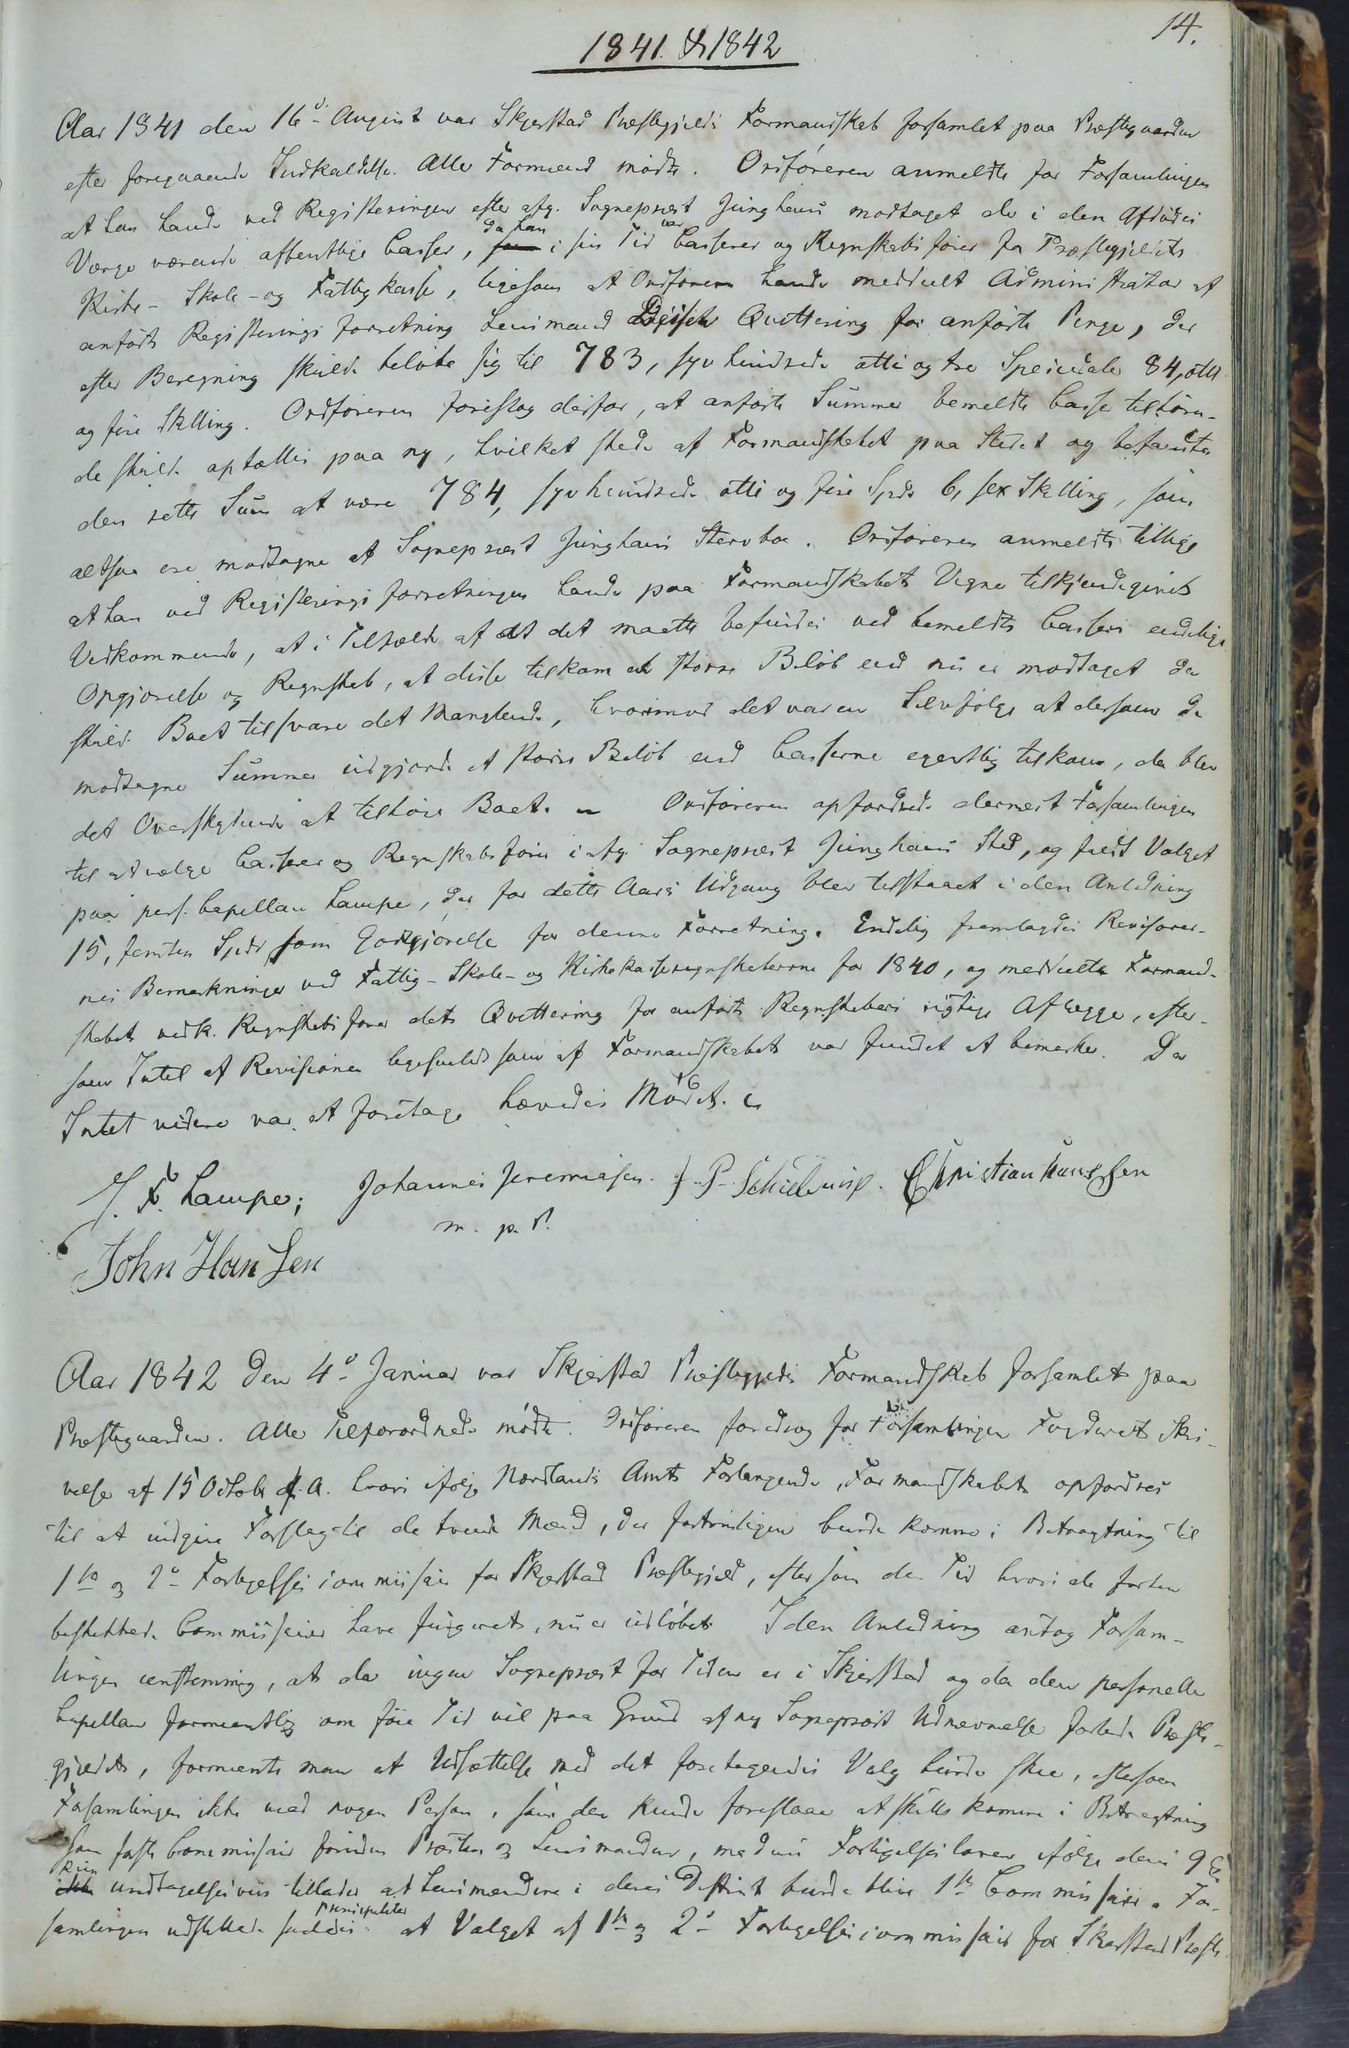 14.
1841 & 1842
Aar 1841 den 16d. August var Skjerstad Præstegjelds Formandskab forsamlet paa Præstegaarden
efter foregaaende Indkaldelse. Alle Formænd mødte. Ordføreren anmeldte for Forsamlingen
at han havde ved Registeringen efter afg. Sognepræst Junghans modtaget de i den Afdødes
Værge værende offentlige Casser, da han i sin Tid var Casserer og Regnskabsfører for Præstegjeldets
Kirke- Skole- og Fattigkasse, ligesom at Ordføreren havde meddeelt Administrator af
anførte Registeringsforretning Lensmand Qvittering for anførte Penge, der
efter Beregning skulde beløbe sig til 783, syv hundrede otti og tre Speciedaler 84, otti
og fire Skilling. Ordføreren foreslog derfor, at anførte Summer bemeldte Casser tilhøren-
de skulde optælles paa ny, hvilket skede af Formandskabet paa Stedet og befandtes
den rette Sum at være 784, syv hundrede otti og fire Spdr 6, sex Skilling, som
altsaa ere modtagne af Sognepræst Junghans Stervboe. Ordføreren anmeldte tillige
at han ved Registeringsforretningen havde paa Formandskabets Vegne tilkjendegivet
Vedkommende, at i Tilfælde af at det maatte befindes ved bemeldte Cassers endelige
Opgjørelse og Regnskab, at disse tilkom et større Beløb end nu er modtaget da
skulde Boet tilsvare det Manglende, hvorimod det var en Selvfølge at dersom de
modtagne Summer udgjorde et større Beløb end Casserne egentlig tilkom, da blev
det Overskydende at tilhøre Boet. – Ordføreren opfordrede dernæst Forsamlingen
til at vælge Casserer og Regnskabsfører i afg. Sognepræst Junghans Sted, og faldt Valget
paa pers. Capellan Lampe, der for dette Aars Udgang blev tilstaaet i den Anledning
15, femten Spdr, som Godtgjørelse for denne Forretning. Endelig fremlagdes Revisorer-
nes Bemærkninger ved Fattig- Skole- og Kirkekasseregnskaberne for 1840, og meddeelte Formand-
skabet vedk. Regnskabsfører dets Qvittering for anførte Regnskabers rigtige Aflægge, efter-
som Intet af Revisionen ligesaalidt som af Formandskabet var fundet at bemærke. Da
Intet videre var at foretage hævedes Mødet.
J. F. Lampe; Johannes Jeremiasen. J. P. Christian Hanssen
m. p. P.
John Hansen
Aar 1842 den 4d. Januar var Skjerstad Præstegjelds Formandskab forsamlet paa
Præstegaarden. Alle Tilforordnede mødte. Ordføreren foredrog for Forsamlingen Fogderiets Skri-
velse af 15 Octobr f. A. hvori ifølge Nordlands Amts Forlangende, Formandskabet opfordres
til at indgive Forslag til de tvende Mænd, der fortrinligen burde komme i Betragtning til
1ste og 2den Forligelsescommissair for Skjerstad Præstegjeld, eftersom den Tid hvori de forhen
beskikkede Commissairer have fungeret, nu er udløbet. I den Anledning antog Forsam-
lingen eenstemmig, at da ingen Sognepræst for Tiden er i Skjerstad og da den personelle
Capellan formeentlig om føie Tid vil paa Grund af ny Sognepræsts Udnævnelse forlade Præste-
gjeldet, formeente man at Udsættelse med det foretagendes Valg burde skee, eftersom
Forsamlingen ikke veed nogen Person, som den kunde foreslaae at skulle komme i Betragtning
som første Commissair foruden Præsten og Lensmanden, medens Forligelsesloven ifølge dens 9 §
kun undtagelsesviis tillader at Lensmændene i deres District burde blive 1ste Commissair. For-
samlingen udsatte saaledes at Valget af 1ste og 2den Forligelsescommissair for Skjerstad Præste-